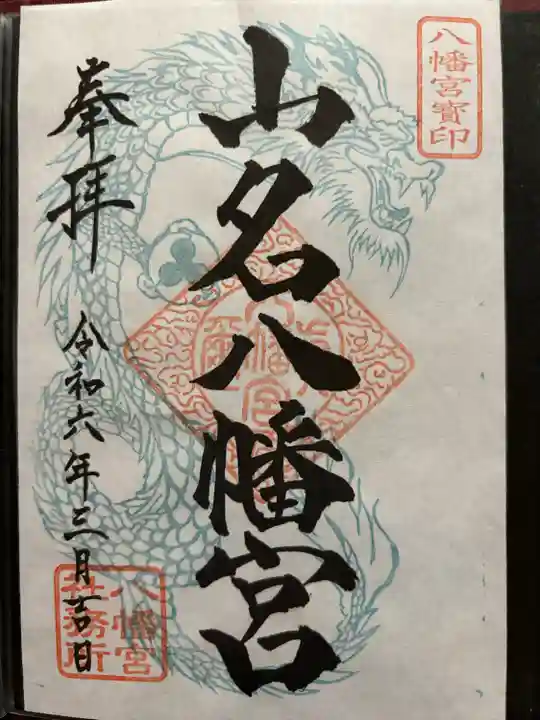 八幡宮寳印
山名八幡宮
奉拝
令和六年三月吉日
八幡宮
社務所